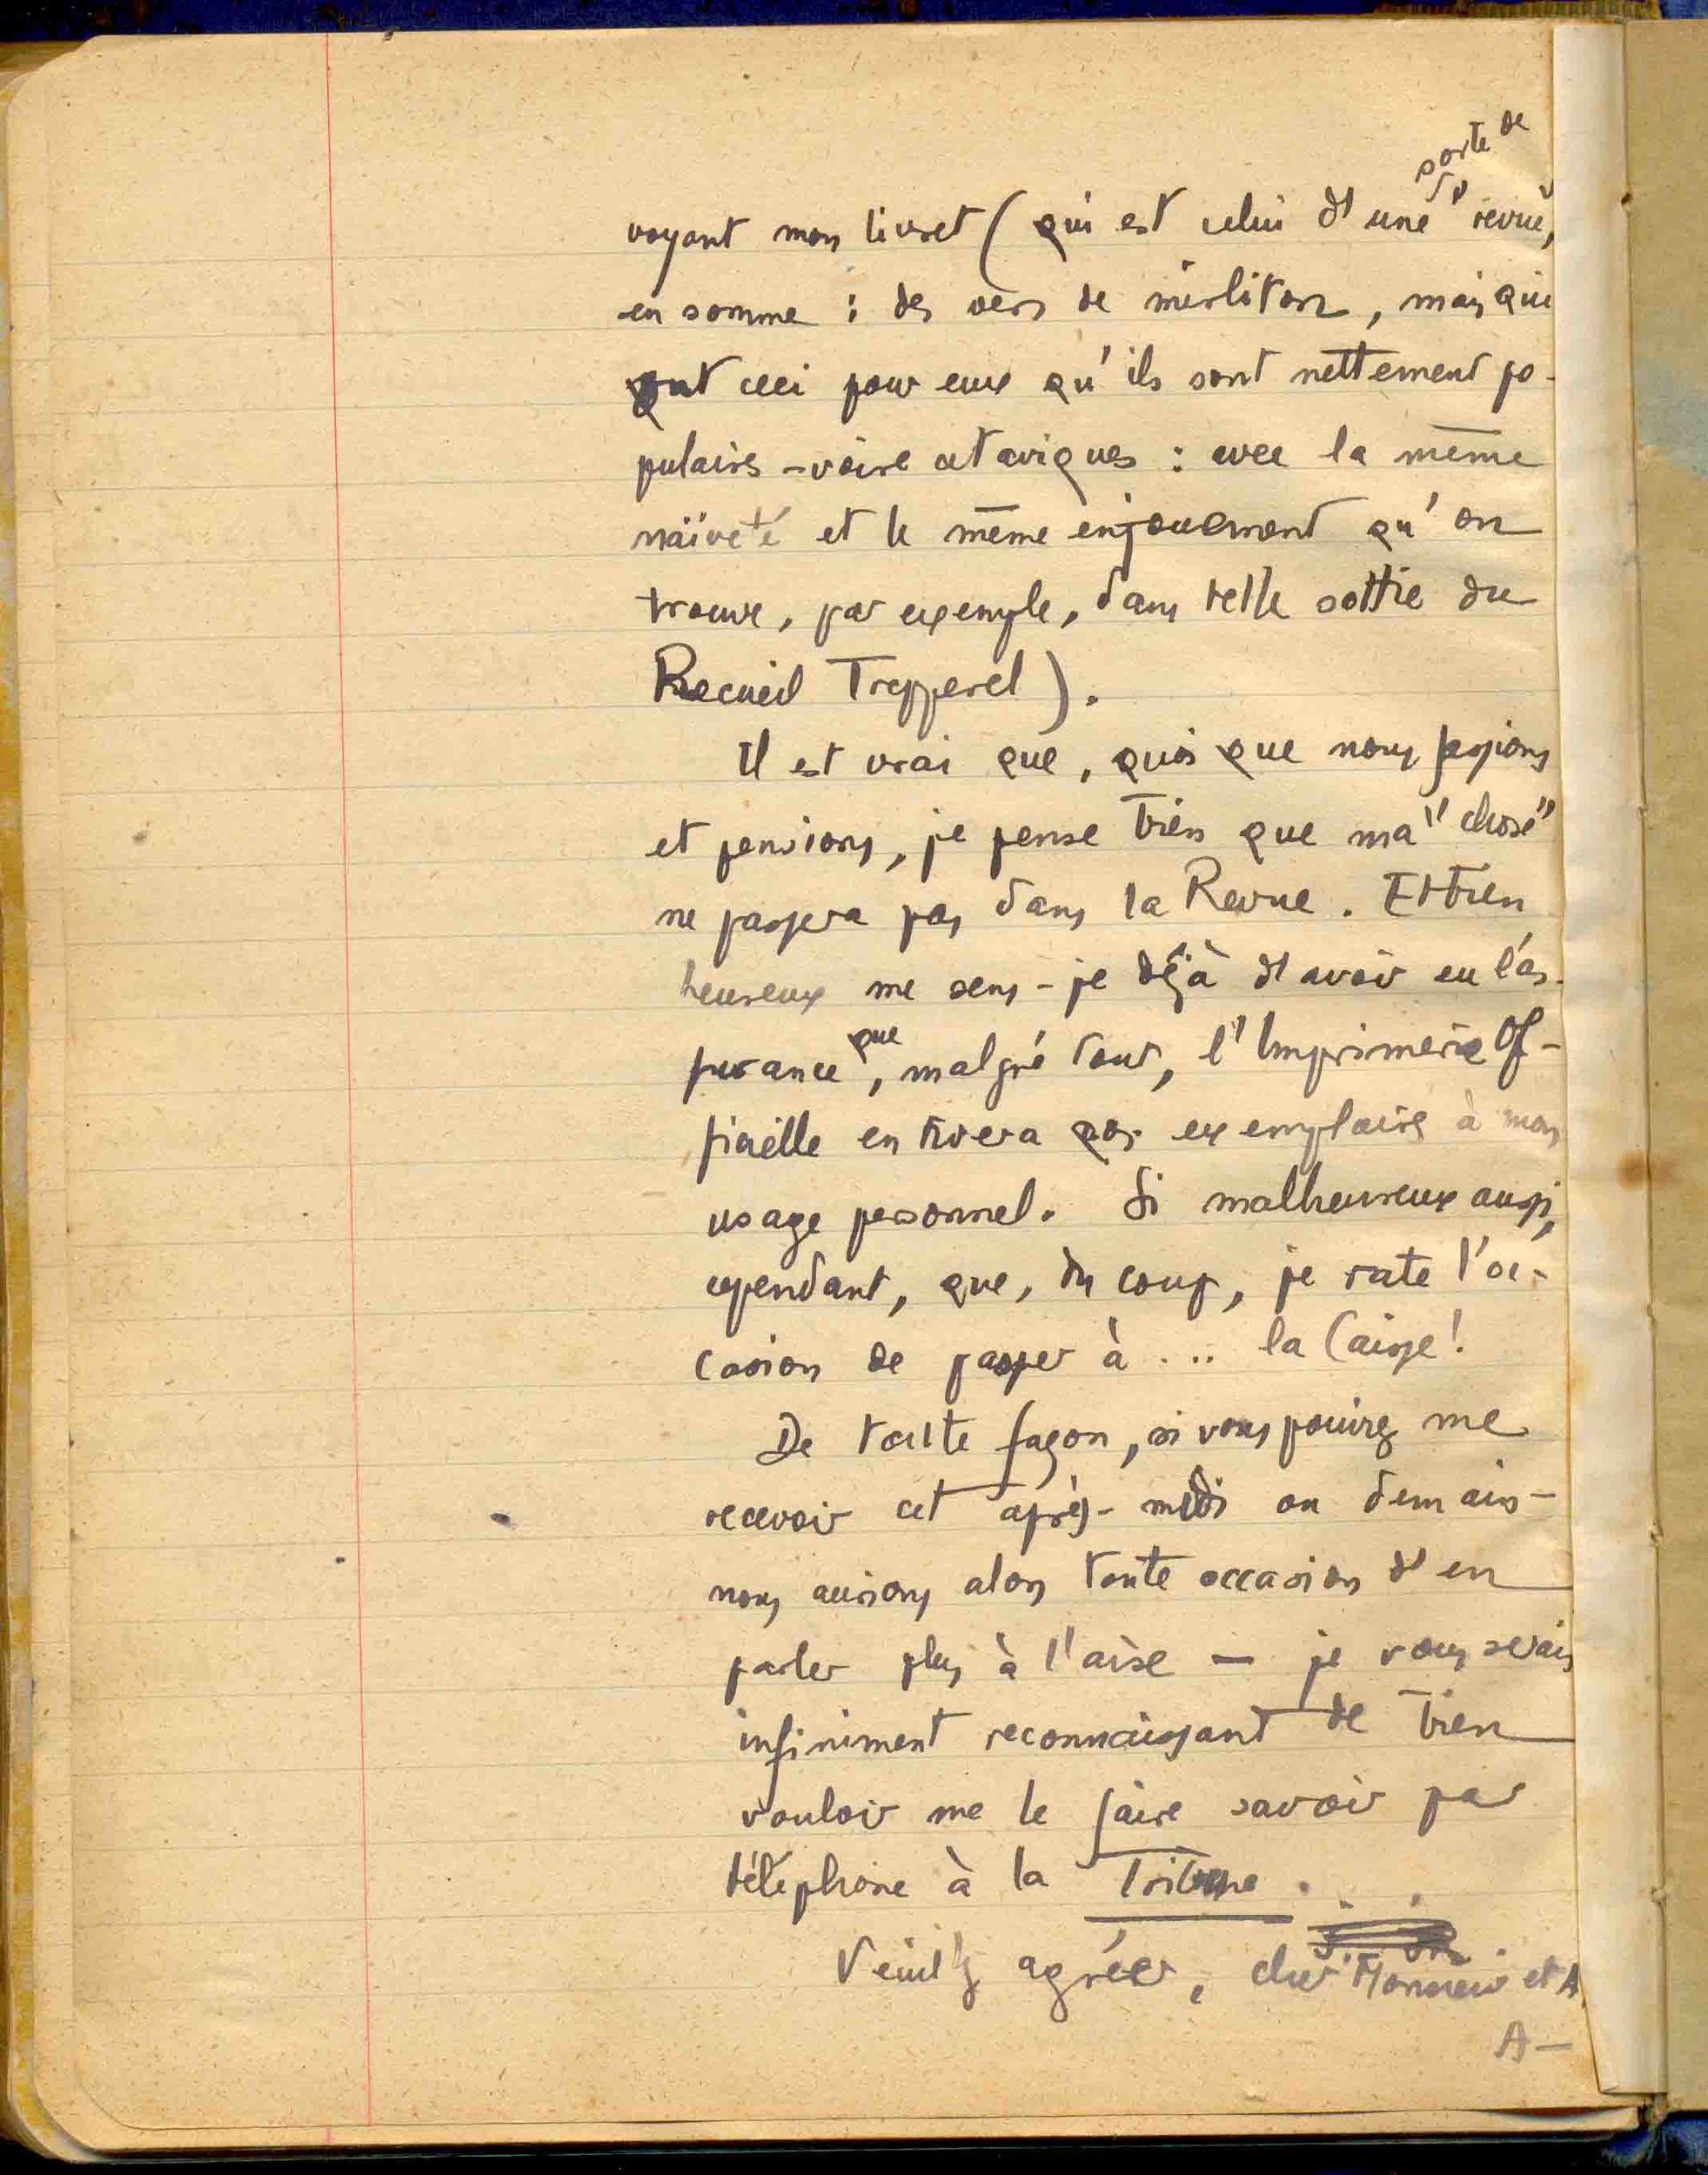 sorte de
voyant mon livret (qui est celui d'une revue,
en somme : des vers de mirliton, mais qui
ont ceci pour eux qu'ils sont nettement po-
pulaires - voire ataviques : avec la même
naïveté et le même enjouement qu'on
trouve, par exemple, dans telle sottie du
Recueil Trepperel).
Il est vrai que, quoi que nous fassions
et pensions, je pense bien que ma "chose"
ne passera pas dans la Revue. Et bien
heureux me sens-je déjà d'avoir eu l'es-
que
pérance, malgré tout, l'Imprimerie Of-
ficielle en tirera exemplaires à mon
usage personnel. Si malheureux aussi,
cependant, que, du coup, je rate l'oc-
casion de passer à ... la Caisse!
De toute façon, si vous pouvez me
recevoir cet après-midi ou demain -
nous aurions alors toute occasion d'en
parler plus à l'aise — je vous serais
infiniment reconnaissant de bien
vouloir me le faire savoir par
téléphone à la Tribune.
Veuillez agréer, cher Monsieur et A
A—